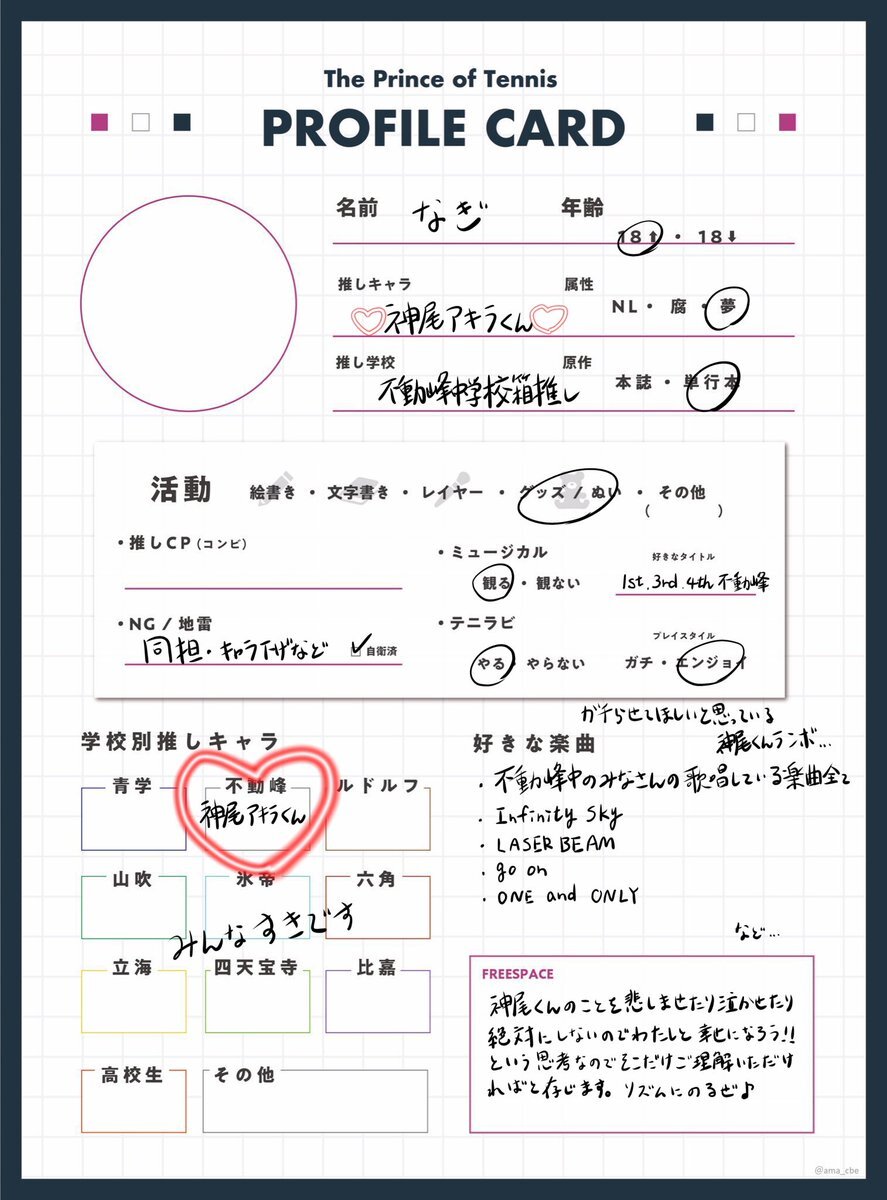 The Prince of Tennis
PROFILE CARD
名前 なぎ 年齢 18⬆ ・ 18⬇
推しキャラ 属性
神尾アキラくん NL ・ 腐 ・ 夢
推し学校 原作
不動峰中学校箱推し 本誌 ・ 単行本
活動 絵書き ・ 文字書き ・ レイヤー ・ グッズ / ぬい ・ その他
( )
・推しCP (コンビ)
・ミュージカル 好きなタイトル
観る ・ 観ない 1st.3rd.4th 不動峰
・NG / 地雷
同担・キャラ下げなど ✓自衛済
・テニラビ プレイスタイル
やる ・ やらない ガチ ・ エンジョイ
ガチらせてほしいと思っている
神尾くんランボ…
学校別推しキャラ
青学 不動峰 ルドルフ
神尾アキラくん
山吹 氷帝 六角
みんなすきです
立海 四天宝寺 比嘉
高校生 その他
好きな楽曲
・不動峰中のみなさんの歌唱している楽曲全て
・Infinity Sky
・LASER BEAM
・go on
・ONE and ONLY
など…
FREESPACE
神尾くんのことを悲しませたり泣かせたり
絶対にしないのでわたしと幸せになろう!!
という思考なのでそこだけご理解いただけ
ればと存じます。リズムにのるぜ♪
@ama_cbe